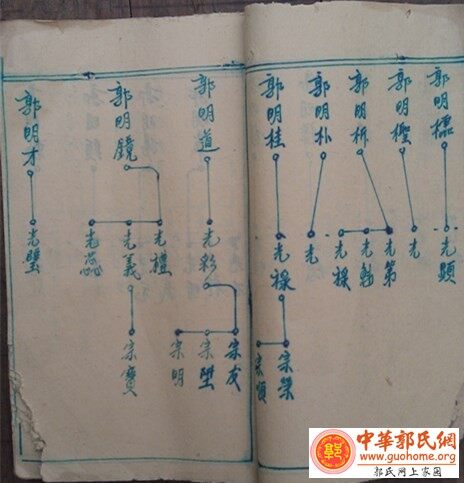 郭明檽
郭明檉
郭明析
郭明朴
郭明桂
郭明道
郭明鏡
郭明才
光顕
光
光第
光魁
光祿
光
光祿
光彩
光禮
光義
光蕊
光璧
宗榮
宗順
宗友
宗陞
宗明
宗寶
中華郭氏網
www.guohome.org
郭氏网上家园